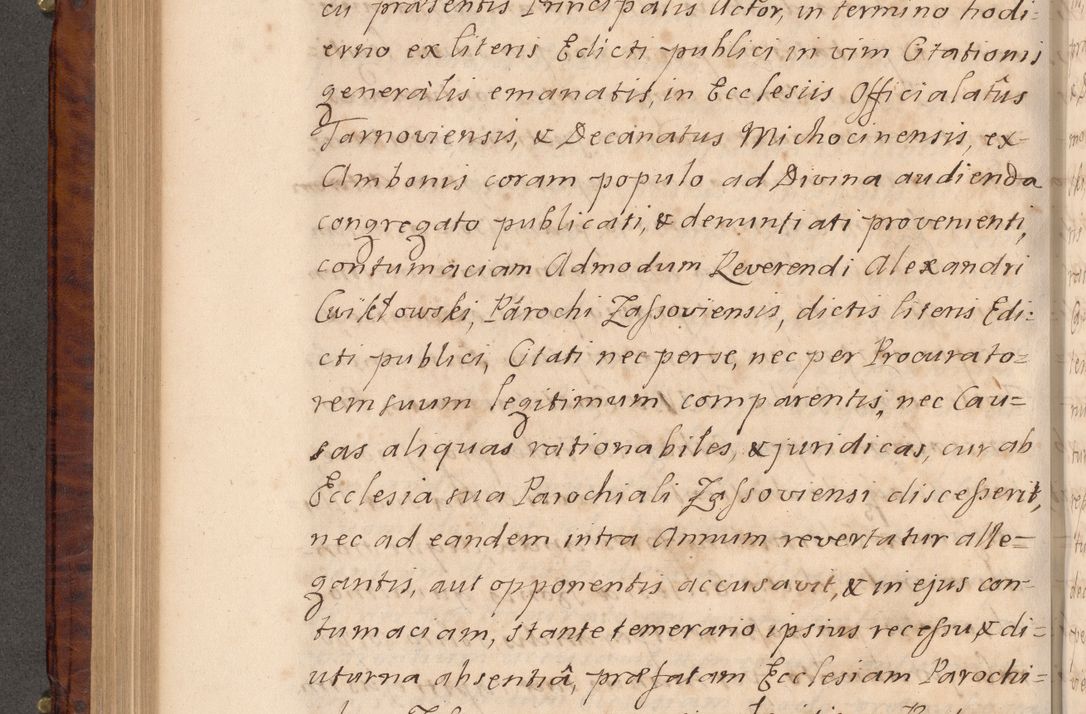 cii præsentis Principalis Actor, in termino hodi=
erno ex literis Edicti publici in vim Citationis
generalis emanatis, in Ecclesiis Officialatûs
Tarnoviensis, & Decanatus Michocinensis, ex
Ambonis coram populo ad Divina audienda
congregato publicati, & denuntiati provenienti,
contumaciam Admodum Reverendi Alexandri
Cwikłowski, Parochi Zaſsoviensis, dictis literis Edi=
cti publici, Citati nec per se, nec per Procurato=
rem suum legitimum comparentis, nec Cau=
sas aliquas rationabiles, & juridicas, cur ab
Ecclesia sua Parochiali Zaſsoviensi disceſserit,
nec ad eandem intra Annum revertatur alle=
gantis, aut opponentis accusavit, & in ejus con=
tumaciam, stante temerario ipsius receſsu & di=
uturna absentiâ, præfatam Ecclesiam Parochi=